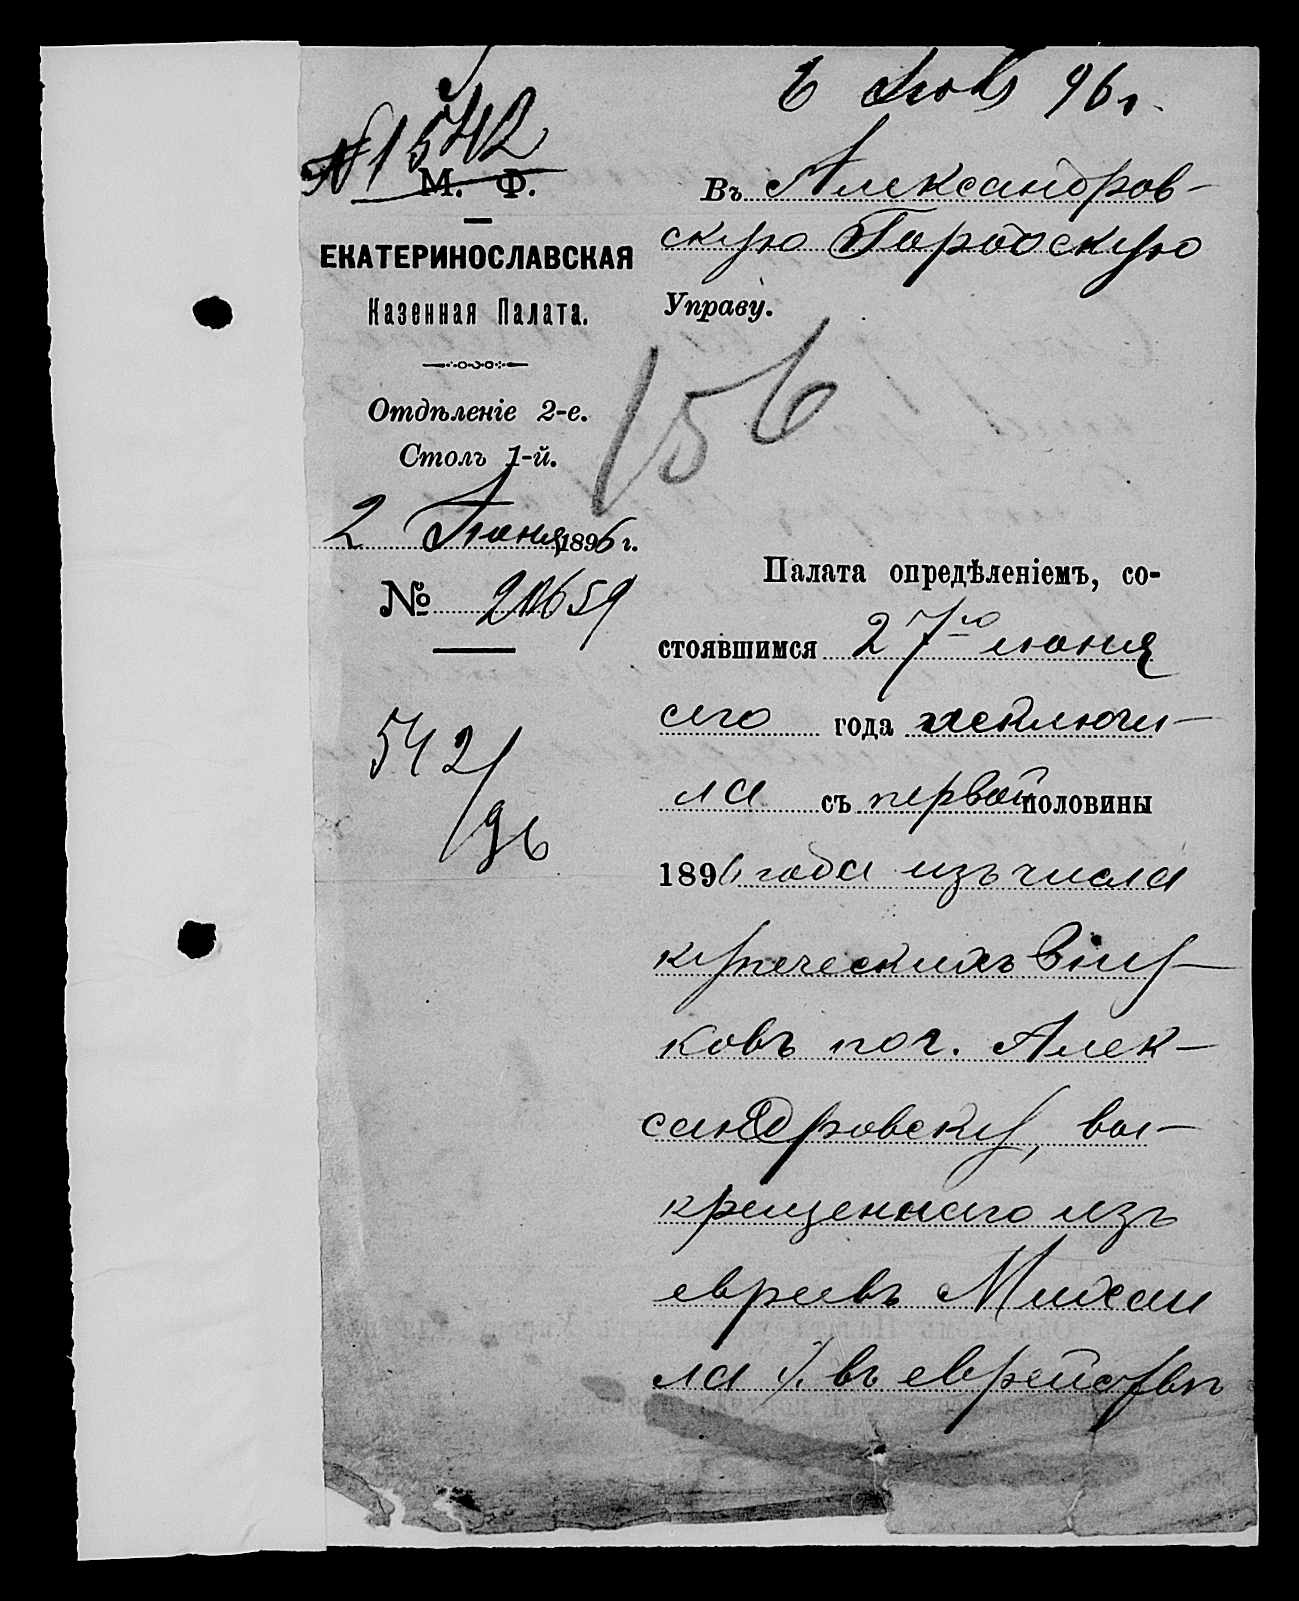 № 1542
6 Июл 96 г.
М. Ф.
ЕКАТЕРИНОСЛАВСКАЯ
Казенная Палата.
Отдѣленіе 2-е.
Столъ 1-й.
2 Іюня 1896 г.
№ 20659
542/96
Въ Александров-
скую Городскую
Управу.
156
Палата опредѣленіемъ, со-
стоявшимся 27го июня
сего года исключи-
ла съ первой половины
1896 года изъ числа
купеческихъ вну-
ковъ по г. Алек-
сандровску, вы-
крещеннаго изъ
евреевъ Михаи
ла /: въ еврействѣ